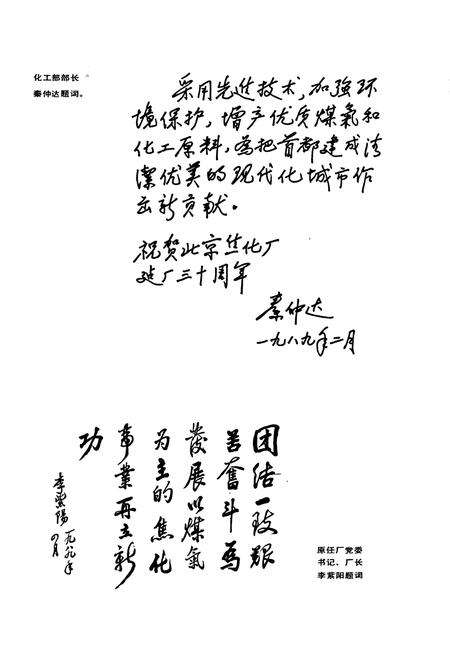 化工部部长
秦仲达题词。
采用先进技术,加强环
境保护,增产优质煤氣和
化工原料,為把首都建成清
潔优美的现代化城市作
出新贡献。
祝贺北京焦化厂
建厂三十周年
秦仲达
一九八九年二月
团结一致艰
苦奮斗為
發展以煤氣
为主的焦化
事業再立新
功
李紫陽 一九八九年
四月
原任厂党委
书记、厂长
李紫阳题词